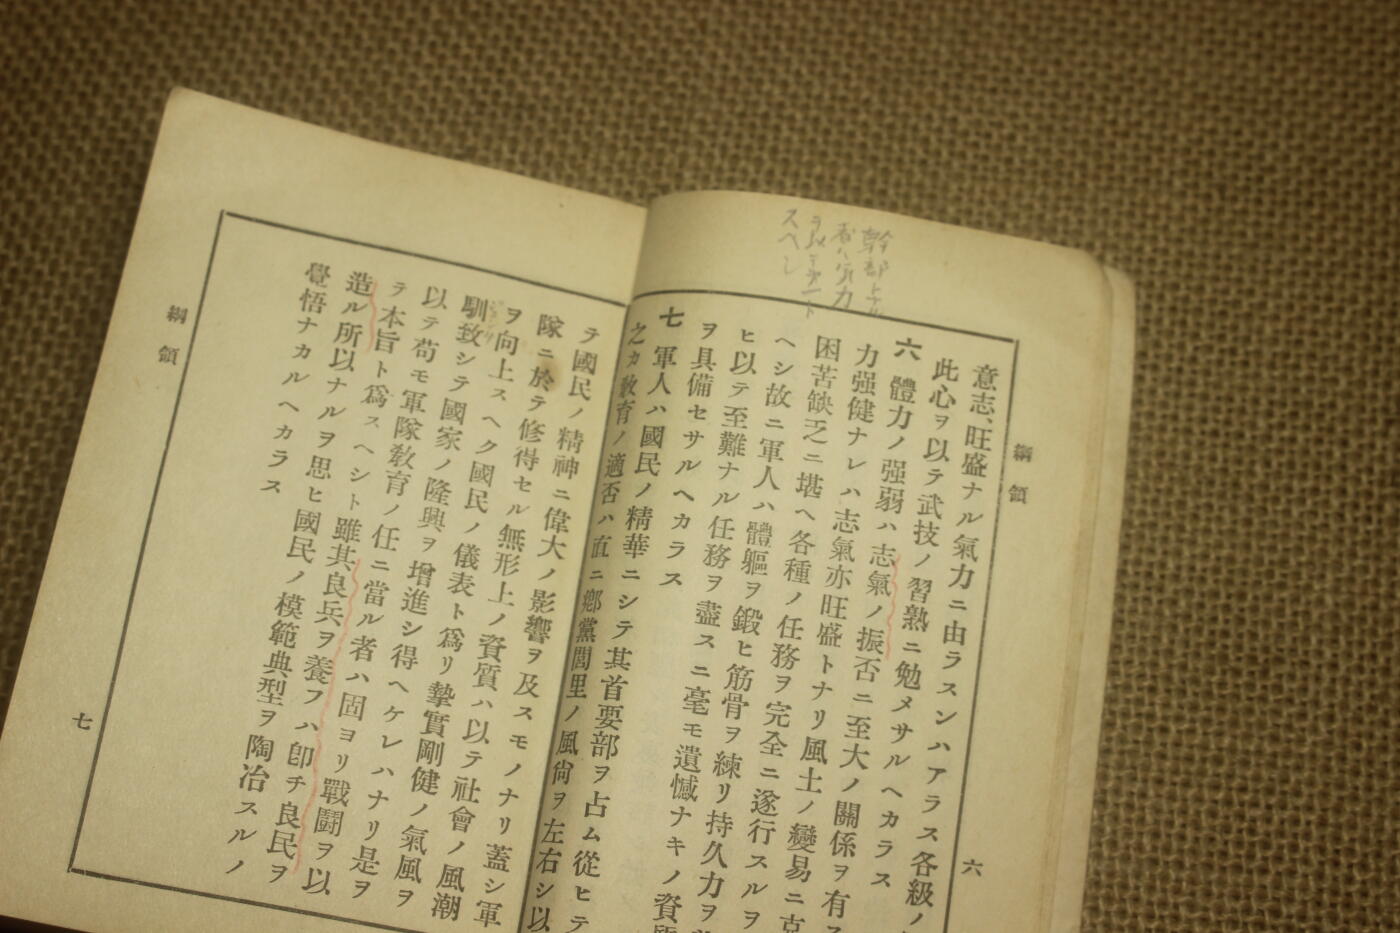 綱領
六
幹部トナル
者ハ氣力
ヲ以テ第一ト
スベシ
意志、旺盛ナル氣力ニ由ラスンハアラス各級ノ
此心ヲ以テ武技ノ習熟ニ勉メサルヘカラス
六 體力ノ强弱ハ志氣ノ振否ニ至大ノ關係ヲ有ス
力强健ナレハ志氣亦旺盛トナリ風土ノ變易ニ克
困苦缺乏ニ堪ヘ各種ノ任務ヲ完全ニ遂行スルヲ
ヘシ故ニ軍人ハ體軀ヲ鍛ヒ筋骨ヲ練リ持久力ヲ
ヒ以テ至難ナル任務ヲ盡スニ毫モ遺憾ナキノ資
ヲ具備セサルヘカラス
七 軍人ハ國民ノ精華ニシテ其首要部ヲ占ム從ヒテ
之カ敎育ノ適否ハ直ニ鄕黨閭里ノ風尙ヲ左右シ以
テ國民ノ精神ニ偉大ノ影響ヲ及スモノナリ蓋シ軍
隊ニ於テ修得セル無形上ノ資質ハ以テ社會ノ風潮
ヲ向上スヘク國民ノ儀表ト爲リ摯實剛健ノ氣風ヲ
馴致シテ國家ノ隆興ヲ增進シ得ヘケレハナリ是ヲ
以テ苟モ軍隊敎育ノ任ニ當ル者ハ固ヨリ戰鬪ヲ以
テ本旨ト爲スヘシト雖其良兵ヲ養フハ卽チ良民ヲ
造ル所以ナルヲ思ヒ國民ノ模範典型ヲ陶冶スルノ
覺悟ナカルヘカラス
綱領
七